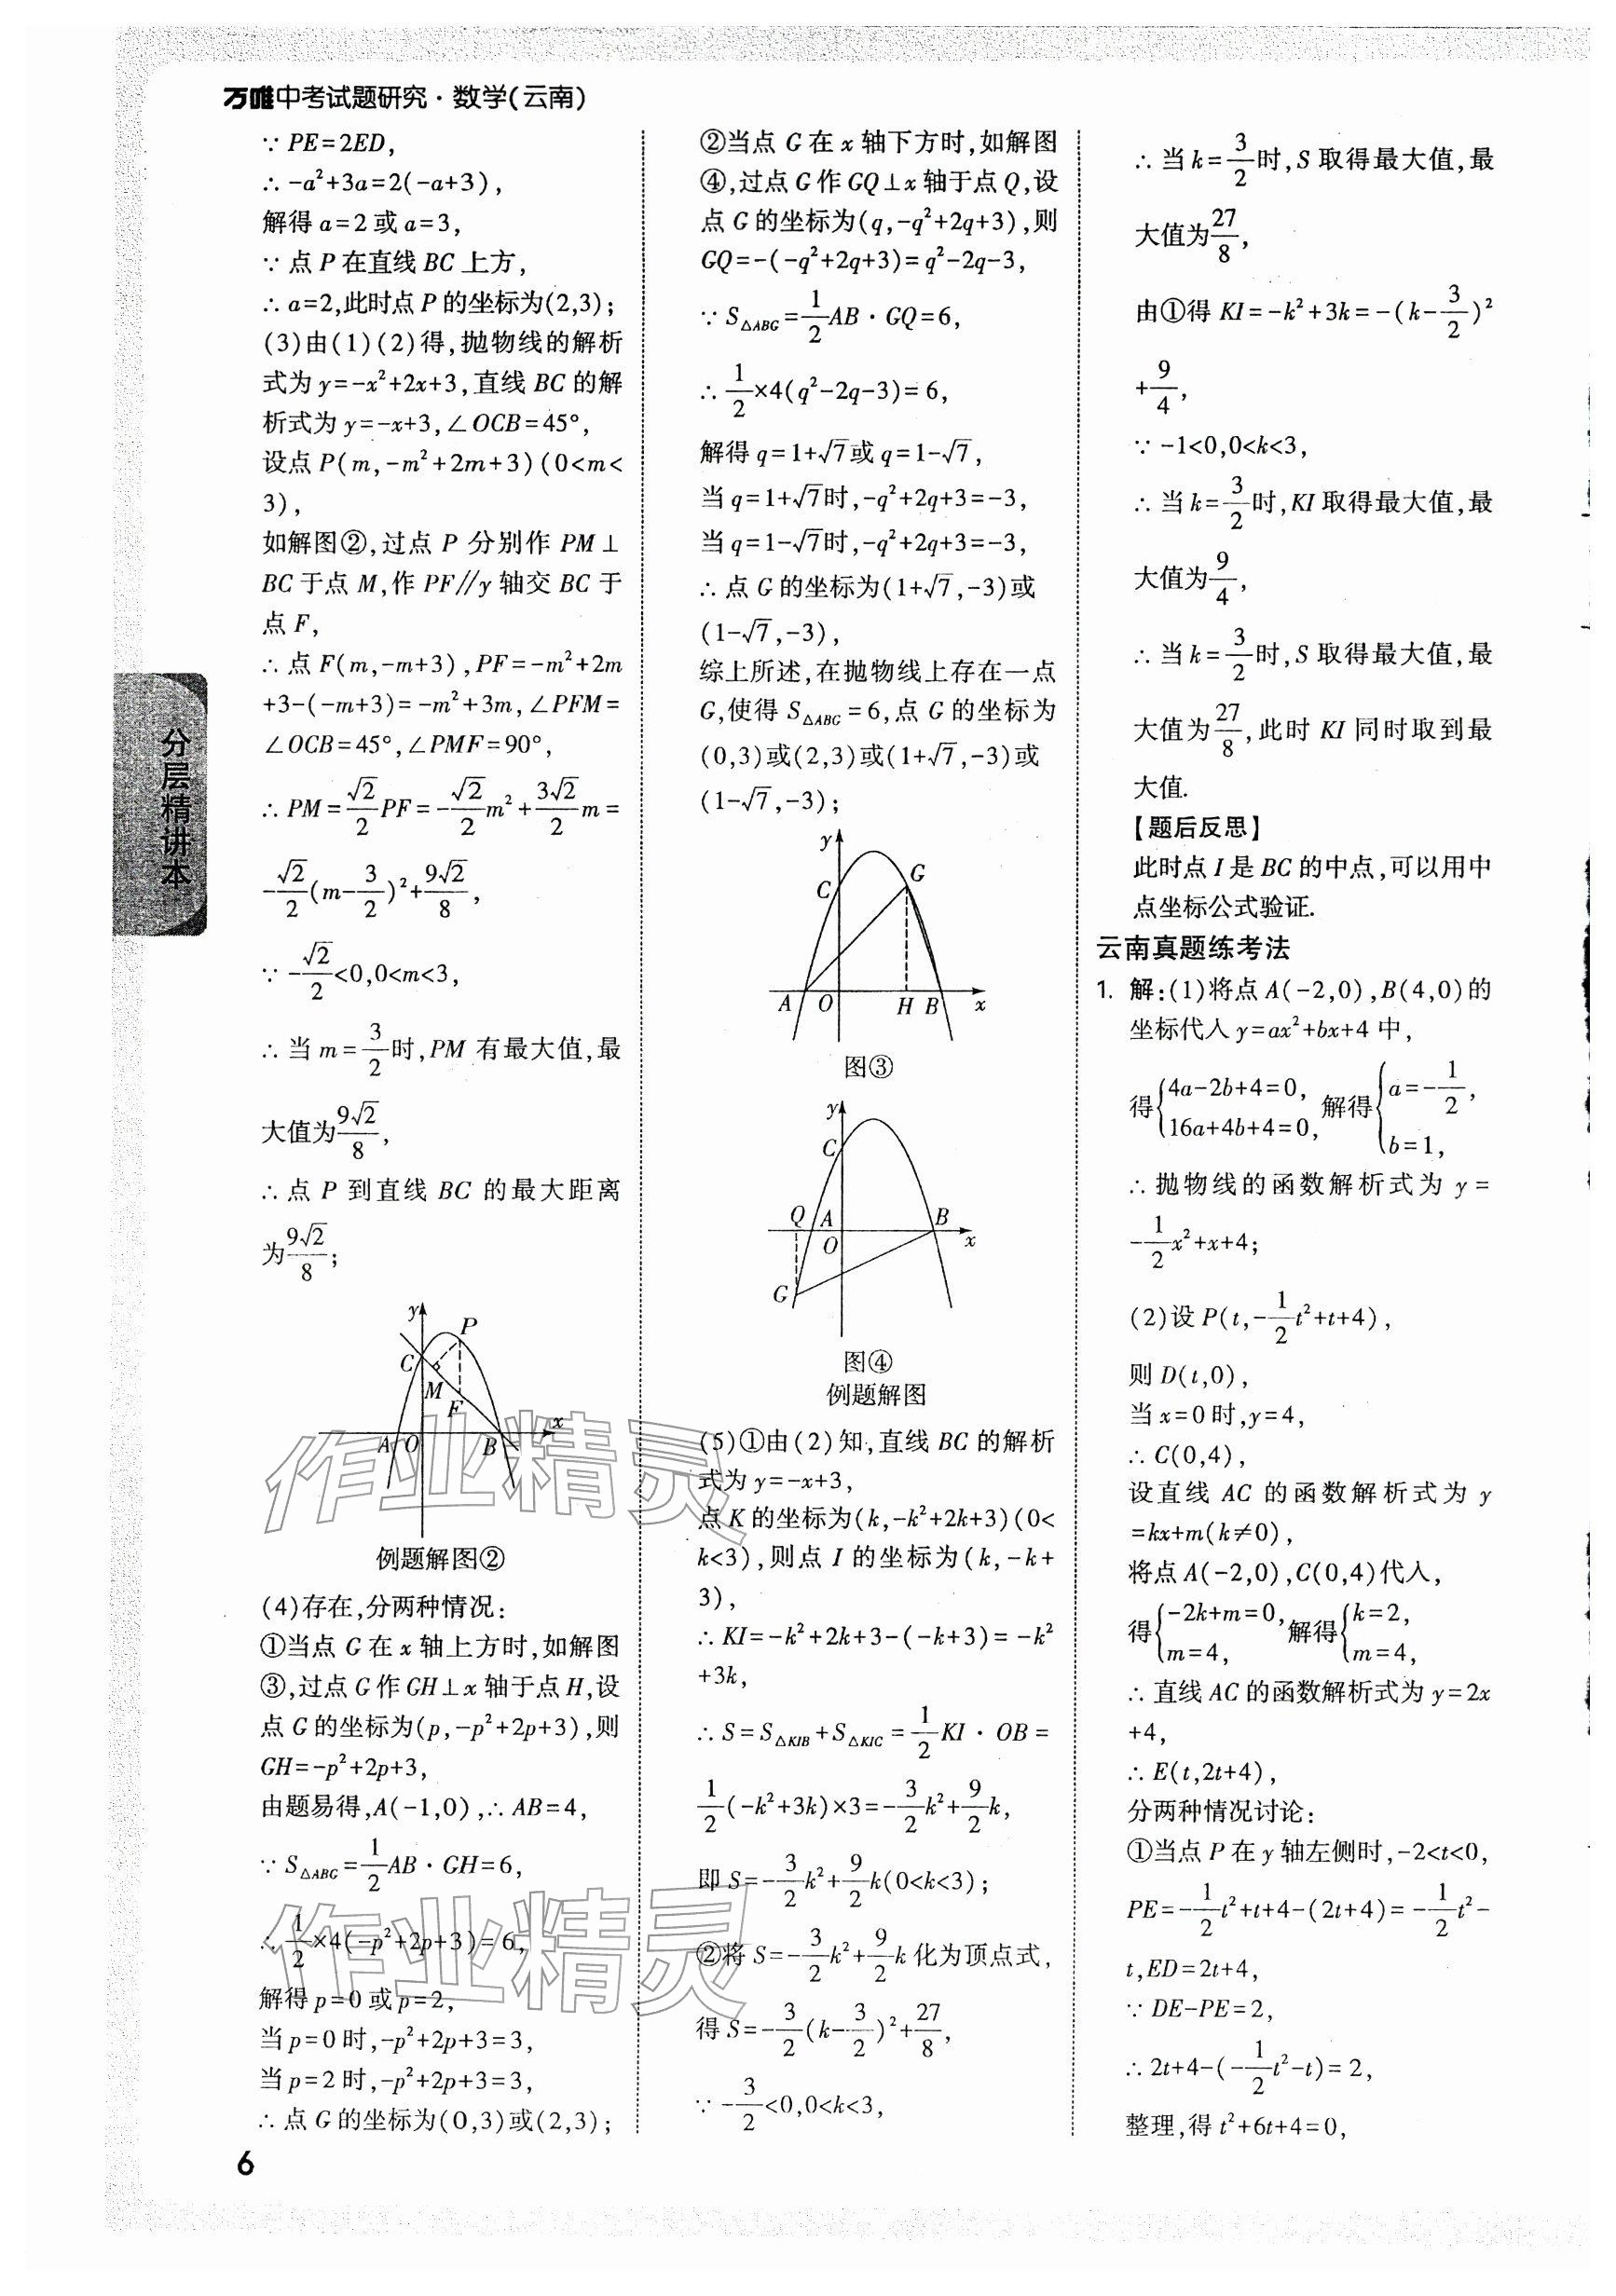 万唯中考试题研究·数学(云南)
∵ PE=2ED,
∴ -a²+3a=2(-a+3),
解得 a=2 或 a=3,
∵ 点 P 在直线 BC 上方,
∴ a=2,此时点 P 的坐标为(2,3);
(3)由(1)(2)得,抛物线的解析
式为 y=-x²+2x+3,直线 BC 的解
析式为 y=-x+3,∠OCB=45°,
设点 P(m,-m²+2m+3)(0<m<
3),
如解图②,过点 P 分别作 PM⊥
BC 于点 M,作 PF∥y 轴交 BC 于
点 F,
∴ 点 F(m,-m+3),PF=-m²+2m
+3-(-m+3)=-m²+3m,∠PFM=
∠OCB=45°,∠PMF=90°,
∴ PM=√2/2 PF=-√2/2 m²+3√2/2 m=
-√2/2(m-3/2)²+9√2/8,
∵ -√2/2<0,0<m<3,
∴ 当 m=3/2时,PM 有最大值,最
大值为9√2/8,
∴ 点 P 到直线 BC 的最大距离
为9√2/8;
y
P
C
M
F
x
A O B
例题解图②
(4)存在,分两种情况:
①当点 G 在 x 轴上方时,如解图
③,过点 G 作 GH⊥x 轴于点 H,设
点 G 的坐标为(p,-p²+2p+3),则
GH=-p²+2p+3,
由题易得,A(-1,0),∴ AB=4,
∵ S△ABG=1/2 AB·GH=6,
∴ 1/2×4(-p²+2p+3)=6,
解得 p=0 或 p=2,
当 p=0 时,-p²+2p+3=3,
当 p=2 时,-p²+2p+3=3,
∴ 点 G 的坐标为(0,3)或(2,3);
②当点 G 在 x 轴下方时,如解图
④,过点 G 作 GQ⊥x 轴于点 Q,设
点 G 的坐标为(q,-q²+2q+3),则
GQ=-(-q²+2q+3)=q²-2q-3,
∵ S△ABG=1/2 AB·GQ=6,
∴ 1/2×4(q²-2q-3)=6,
解得 q=1+√7或 q=1-√7,
当 q=1+√7时,-q²+2q+3=-3,
当 q=1-√7时,-q²+2q+3=-3,
∴ 点 G 的坐标为(1+√7,-3)或
(1-√7,-3),
综上所述,在抛物线上存在一点
G,使得 S△ABG=6,点 G 的坐标为
(0,3)或(2,3)或(1+√7,-3)或
(1-√7,-3);
y
C
G
A O H B x
图③
y
C
Q A B
O x
G
图④
例题解图
(5)①由(2)知,直线 BC 的解析
式为 y=-x+3,
点 K 的坐标为(k,-k²+2k+3)(0<
k<3),则点 I 的坐标为(k,-k+
3),
∴ KI=-k²+2k+3-(-k+3)=-k²
+3k,
∴ S=S△KIB+S△KIC=1/2 KI·OB=
1/2(-k²+3k)×3=-3/2 k²+9/2 k,
即 S=-3/2 k²+9/2 k(0<k<3);
②将 S=-3/2 k²+9/2 k 化为顶点式,
得 S=-3/2(k-3/2)²+27/8,
∵ -3/2<0,0<k<3,
∴ 当 k=3/2时,S 取得最大值,最
大值为27/8,
由①得 KI=-k²+3k=-(k-3/2)²
+9/4,
∵ -1<0,0<k<3,
∴ 当 k=3/2时,KI 取得最大值,最
大值为9/4,
∴ 当 k=3/2时,S 取得最大值,最
大值为27/8,此时 KI 同时取到最
大值.
【题后反思】
此时点 I 是 BC 的中点,可以用中
点坐标公式验证.
云南真题练考法
1. 解:(1)将点 A(-2,0),B(4,0)的
坐标代入 y=ax²+bx+4 中,
得{4a-2b+4=0, 16a+4b+4=0, 解得{a=-1/2, b=1,
∴ 抛物线的函数解析式为 y=
-1/2 x²+x+4;
(2)设 P(t,-1/2 t²+t+4),
则 D(t,0),
当 x=0 时,y=4,
∴ C(0,4),
设直线 AC 的函数解析式为 y
=kx+m(k≠0),
将点 A(-2,0),C(0,4)代入,
得{-2k+m=0, m=4, 解得{k=2, m=4,
∴ 直线 AC 的函数解析式为 y=2x
+4,
∴ E(t,2t+4),
分两种情况讨论:
①当点 P 在 y 轴左侧时,-2<t<0,
PE=-1/2 t²+t+4-(2t+4)=-1/2 t²-
t,ED=2t+4,
∵ DE-PE=2,
∴ 2t+4-(-1/2 t²-t)=2,
整理,得 t²+6t+4=0,
分层精讲本
6
作业精灵
作业精灵